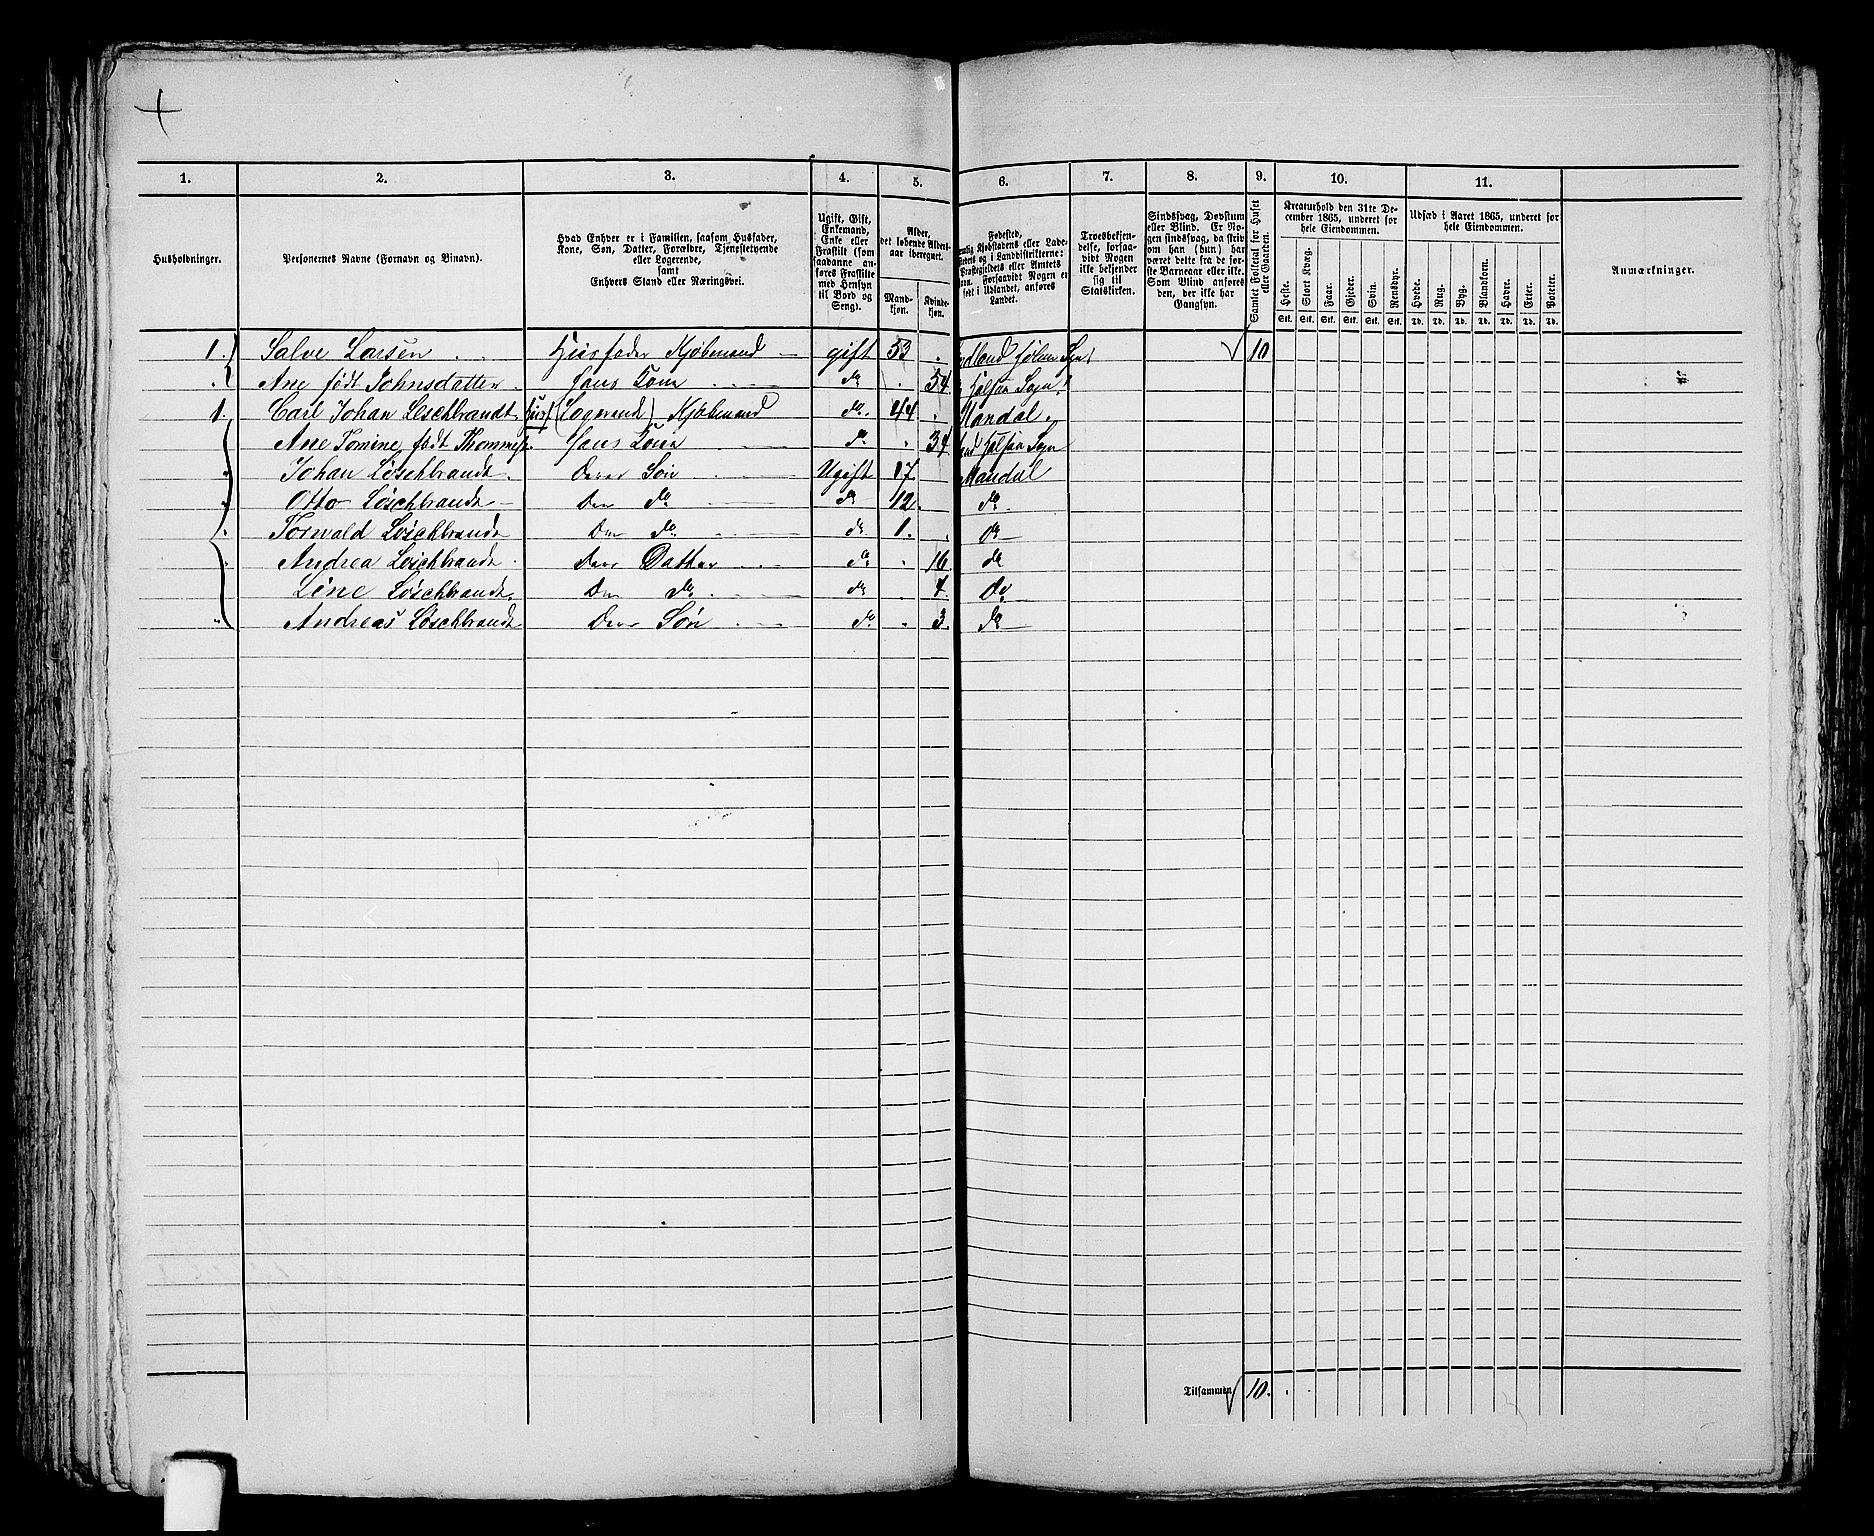 1. 2. 3. 4. 5. 6. 7. 8. 9. 10. 11.
Husholdninger.
Personernes Navne (Fornavn og Binavn).
Hvad Enhver er i Familien, saasom Husfader,
Kone, Søn, Datter, Forældre, Tjenestetyende
eller Logerende,
samt
Enhvers Stand eller Næringsvei.
Ugift, Gift,
Enkemand,
Enke eller
Fraskilt (som
saadanne an-
føres Fraskilte
med Hensyn
til Bord og
Seng).
Alder,
det løbende Alders-
aar iberegnet.
Mand-
kjøn.
Kvinde-
kjøn.
Fødested,
Kjøbstadens eller Lade-
stedets og i Landdistrikterne:
Præstegjeldets eller Amtets
Forsaavidt Nogen er
født i Udlandet, anføres
Landet.
Troesbekjen-
delse, forsaa-
vidt Nogen
ikke bekjender
sig til
Statskirken.
Sindssvag, Døvstum
eller Blind. Er No-
gen sindssvag, da skriv
om han (hun) har
været dette fra de før-
ste Barneaar eller ikke.
Som Blind anføres
den, der ikke har
Gangsyn.
Samlet Folketal for Huset
eller Gaarden.
Kreaturhold den 31te De-
cember 1865, underet for
hele Eiendommen.
Heste. Stort Kvæg. Faar. Gjeder. Svin. Rensdyr.
Stk. Stk. Stk. Stk. Stk. Stk.
Udsæd i Aaret 1865, underet for
hele Eiendommen.
Hvede. Rug. Byg. Blandkorn. Havre. Erter. Poteter.
Td. Td. Td. Td. Td. Td. Td.
Anmærkninger.
1. Salve Larsen Husfader Kjøbmand gift 53 Sogn 10
Ane født Johnsdatter Hans Kone do 54 Sogn
1. Carl Johan Leschbrandt (Logerende) Kjøbmand do. 44 Mandal.
Ane Tomine født Hans Kone do 34 Sogn
Johan Löschbrandt Deres Søn Ugift 17 Mandal
Otto Löschbrandt do do 12. do
Torwald Löschbrandt do do 1. do
Andrea Löschbrandt Deres Datter do 16 do
Line Löschbrandt do do do
Andreas Löschbrandt Deres Søn do 3. do
Tilsammen 10.